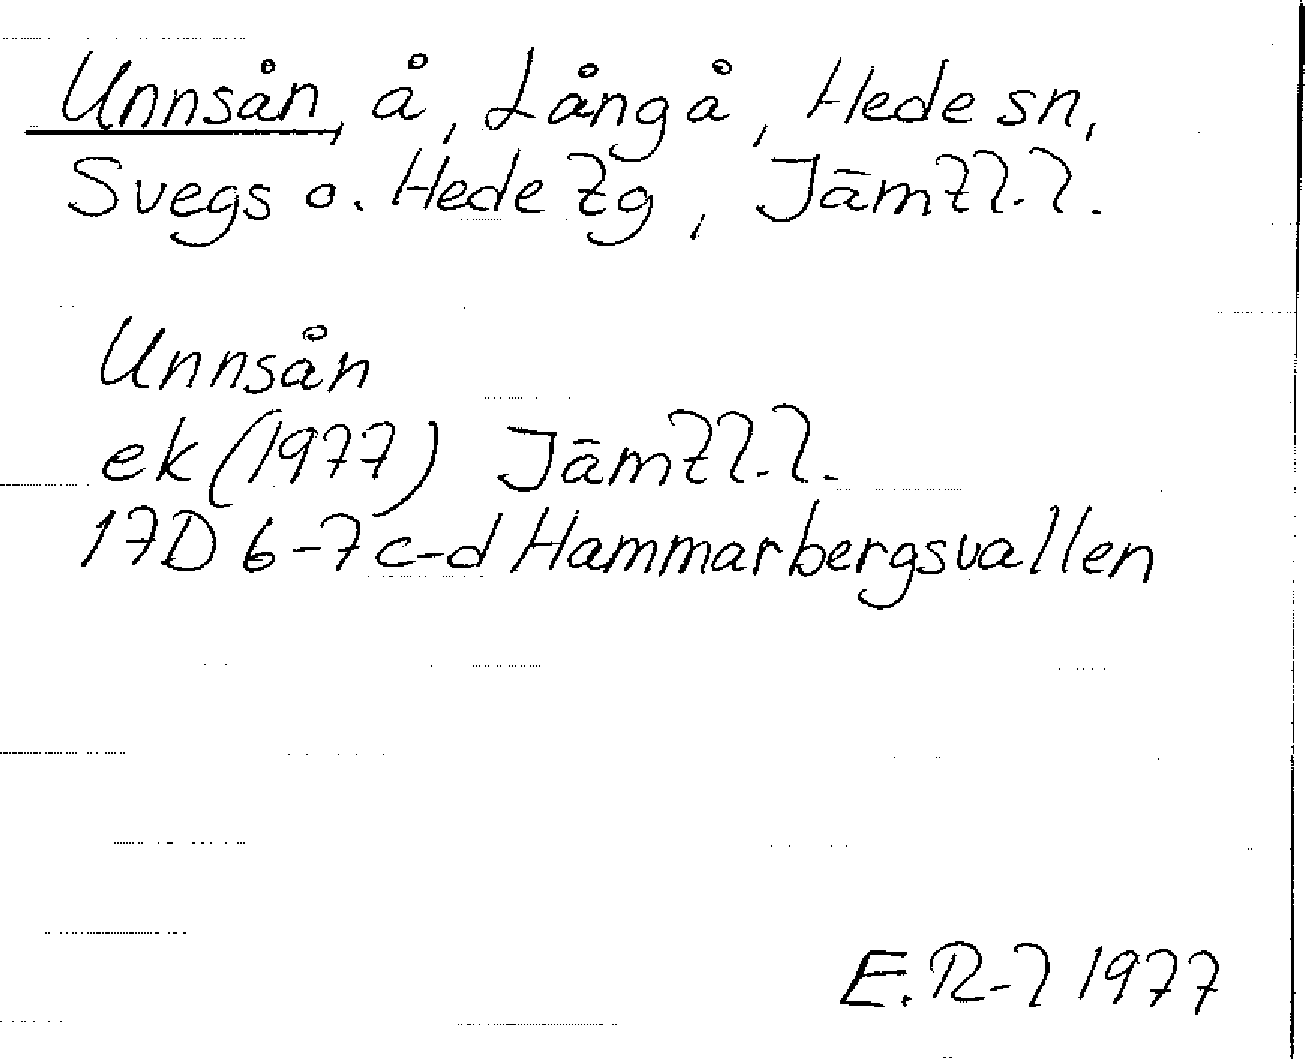 Unnsån, å, Långå, Hede sn,
Svegs o. Hede tg, Jämtl. l.
Unnsån
ek (1977) Jämtl. l.
17D 6-7 c-d Hammarbergsvallen
E. R-l 1977